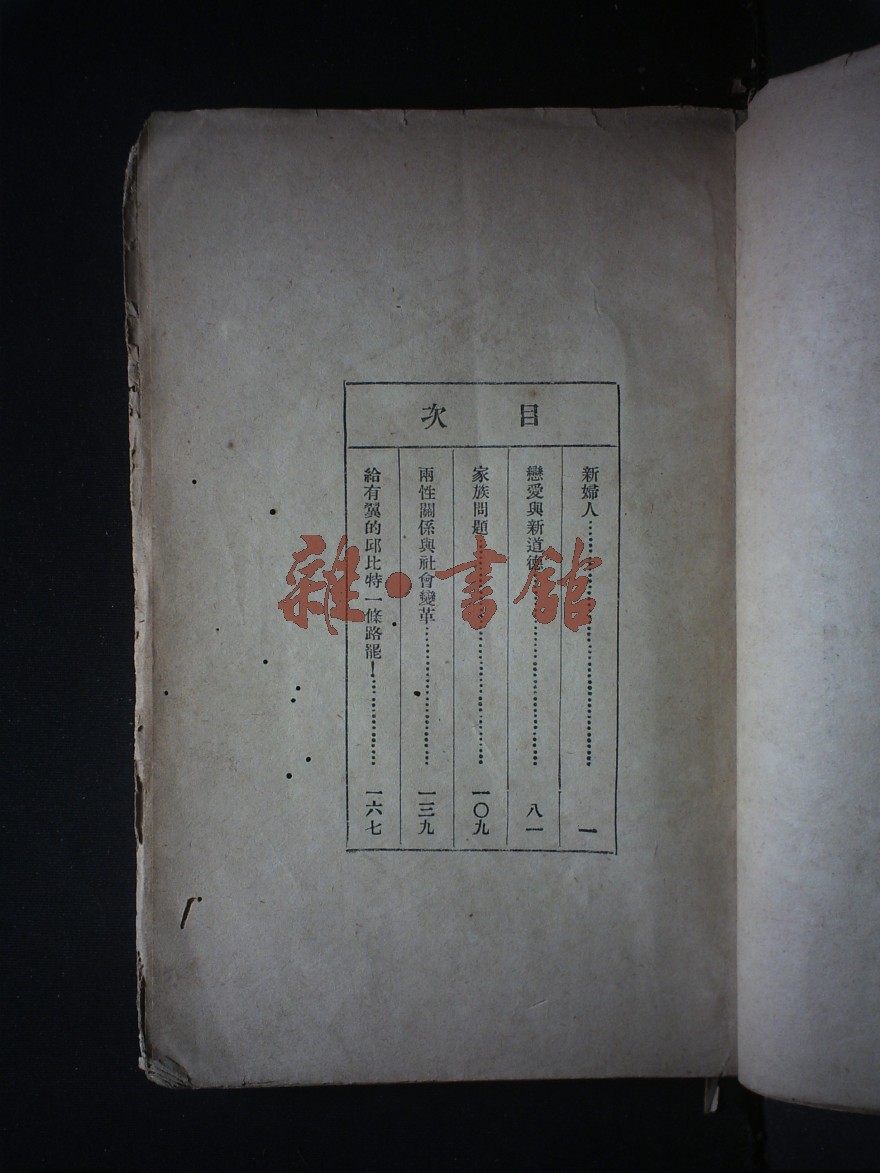 目次
新婦人……一
戀愛與新道德……八一
家族問題……一〇九
兩性關係與社會變革……一三九
給有翼的邱比特一條路罷！……一六七
雜·書館